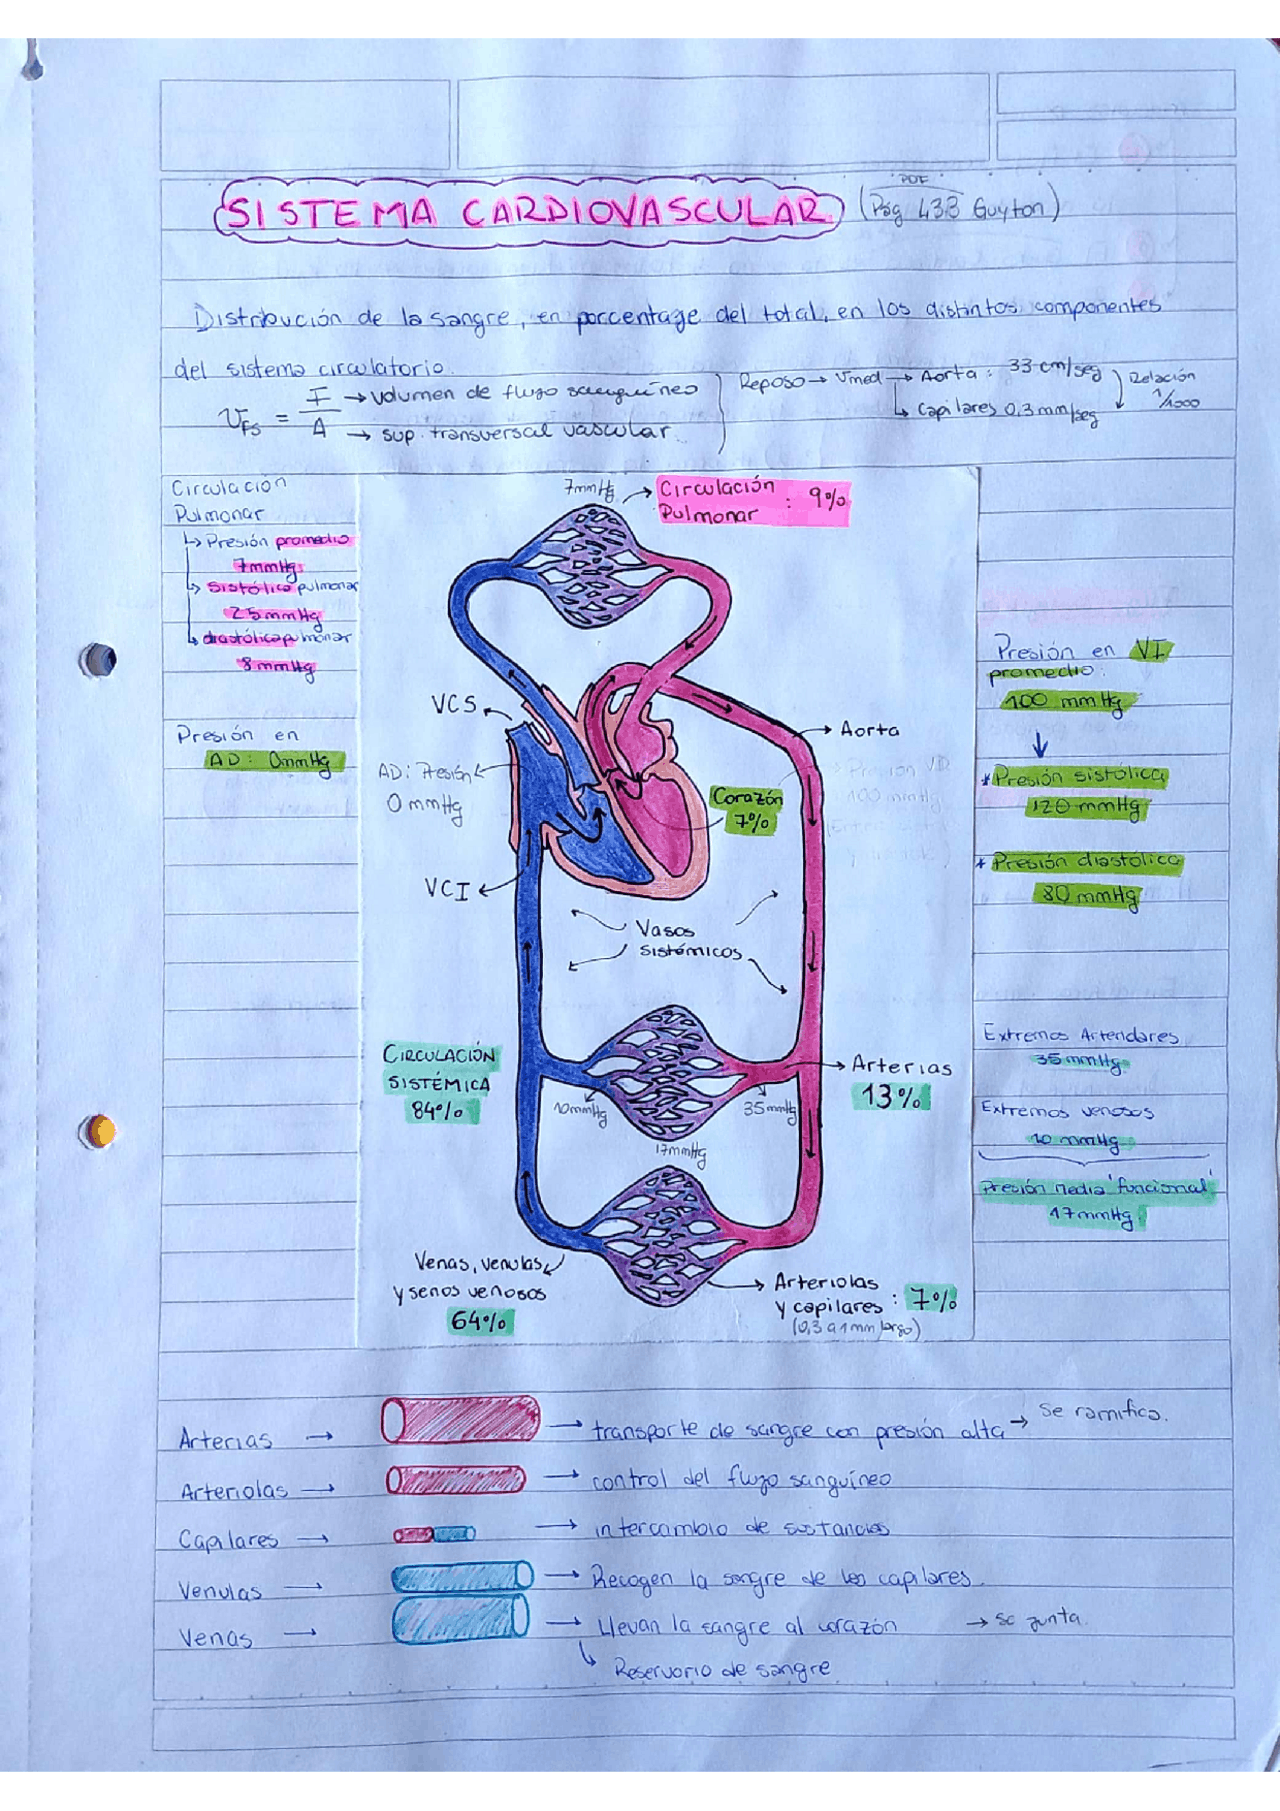 SISTEMA CARDIOVASCULAR (Pág 433 Guyton)
PDF
Distribución de la sangre, en porcentage del total, en los distintos componentes
del sistema circulatorio.
VFS = F/A
F → volumen de flujo sanguíneo
A → sup. transversal vascular
Reposo → Vmed → Aorta: 33 cm/seg
↳ Capilares 0,3 mm/seg
Relación
1/1000
Circulación
Pulmonar
↳ Presión promedio
7mmHg
↳ Sistólica pulmonar
25 mmHg
↳ diastólica pulmonar
8 mmHg
Presión en
AD: 0mmHg
7mmHg → Circulación
Pulmonar : 9%
VCS
AD: Presión
0 mmHg
VCI
Corazón
7%
→ Aorta
Presión VD
100 mmHg
Vasos
sistémicos
CIRCULACIÓN
SISTÉMICA
84%
10mmHg
35mmHg
17mmHg
→ Arterias
13%
Venas, venulas
y senos venosos
64%
→ Arteriolas
y capilares : 7%
(0,3 a 1 mm largo)
Presión en VI
promedio:
100 mmHg
↓
* Presión sistólica
120 mmHg
* Presión diastólica
80 mmHg
Extremos Arteriolares
35 mmHg
Extremos venosos
10 mmHg
Presión media 'funcional'
17mmHg
Arterias → → transporte de sangre con presión alta → Se ramifica.
Arteriolas → → control del flujo sanguíneo
Capilares → → intercambio de sustancias
Venulas → → Recogen la sangre de los capilares.
Venas → → Llevan la sangre al corazón → se junta.
↳ Reservorio de sangre